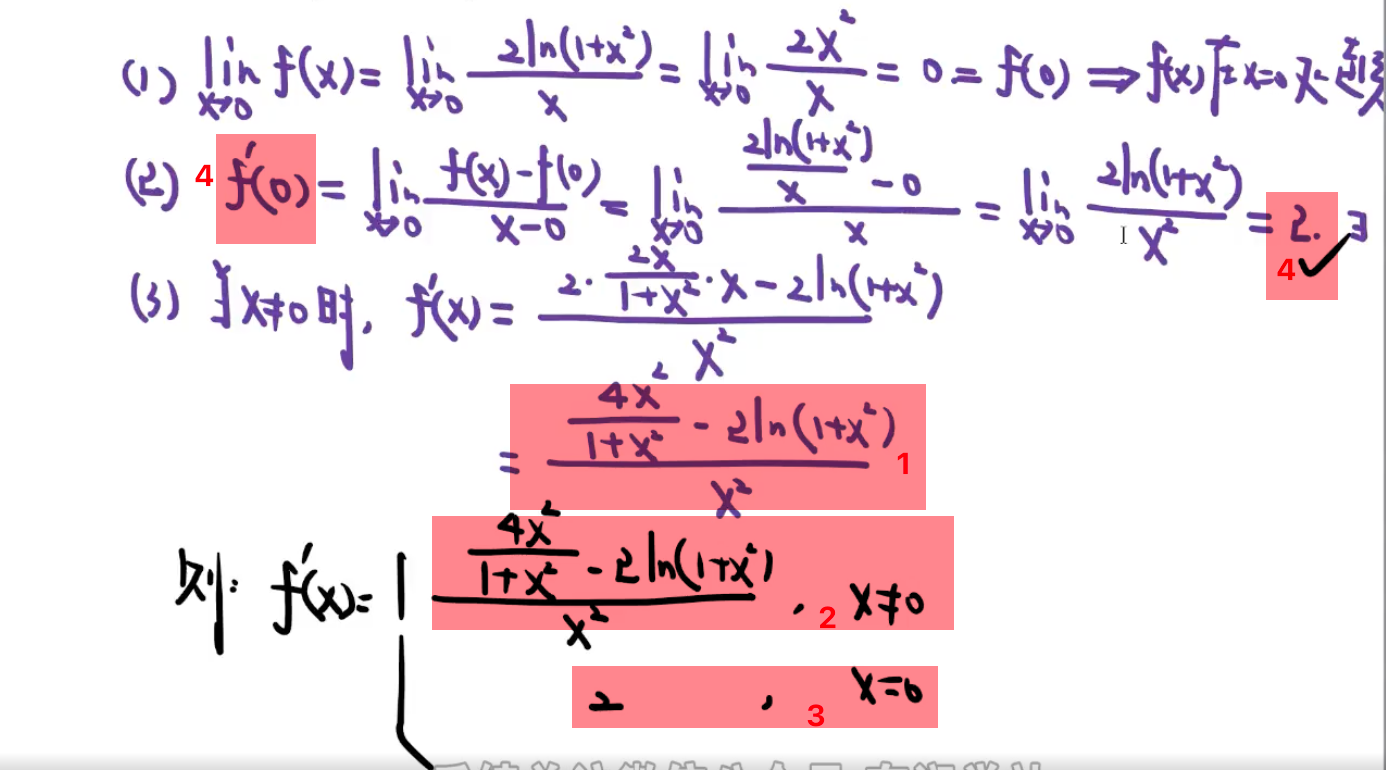 (1) lim x→0 f(x) = lim x→0 2ln(1+x²)/x = lim x→0 2x²/x = 0 = f(0) ⇒ f(x)在x=0处连续
(2) 4 f'(0) = lim x→0 (f(x)-f(0))/(x-0) = lim x→0 (2ln(1+x²)/x - 0)/x = lim x→0 2ln(1+x²)/x² = 2. ∃ 4 ✓
(3) 当x≠0时, f'(x) = (2·2x/(1+x²)·x - 2ln(1+x²))/x²
= (4x²/(1+x²) - 2ln(1+x²))/x² 1
则: f'(x) = { (4x²/(1+x²) - 2ln(1+x²))/x² , 2 x≠0
2 , 3 x=0